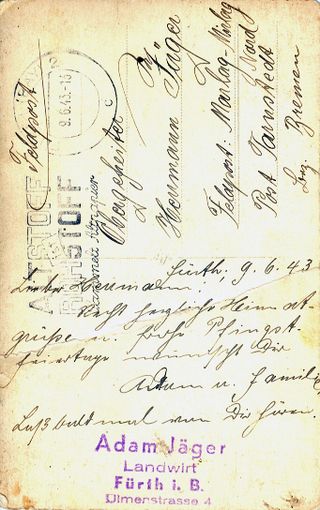 Feldpost
9.6.43
ALTSTOFF
ROHSTOFF
sammelt Altpapier
Obergefreiter
Hermann Jäger
Feldpost: Marlag-Milag
Nord
Post Tarmstedt
Bez. Bremen
Fürth, 9.6.43
Lieber Hermann!
Recht herzliche Heimat-
grüße u. frohe Pfingst-
feiertage wünscht Dir
Adam u. Familie
Laß bald mal von Dir hören.
Adam Jäger
Landwirt
Fürth i. B.
Ulmenstrasse 4